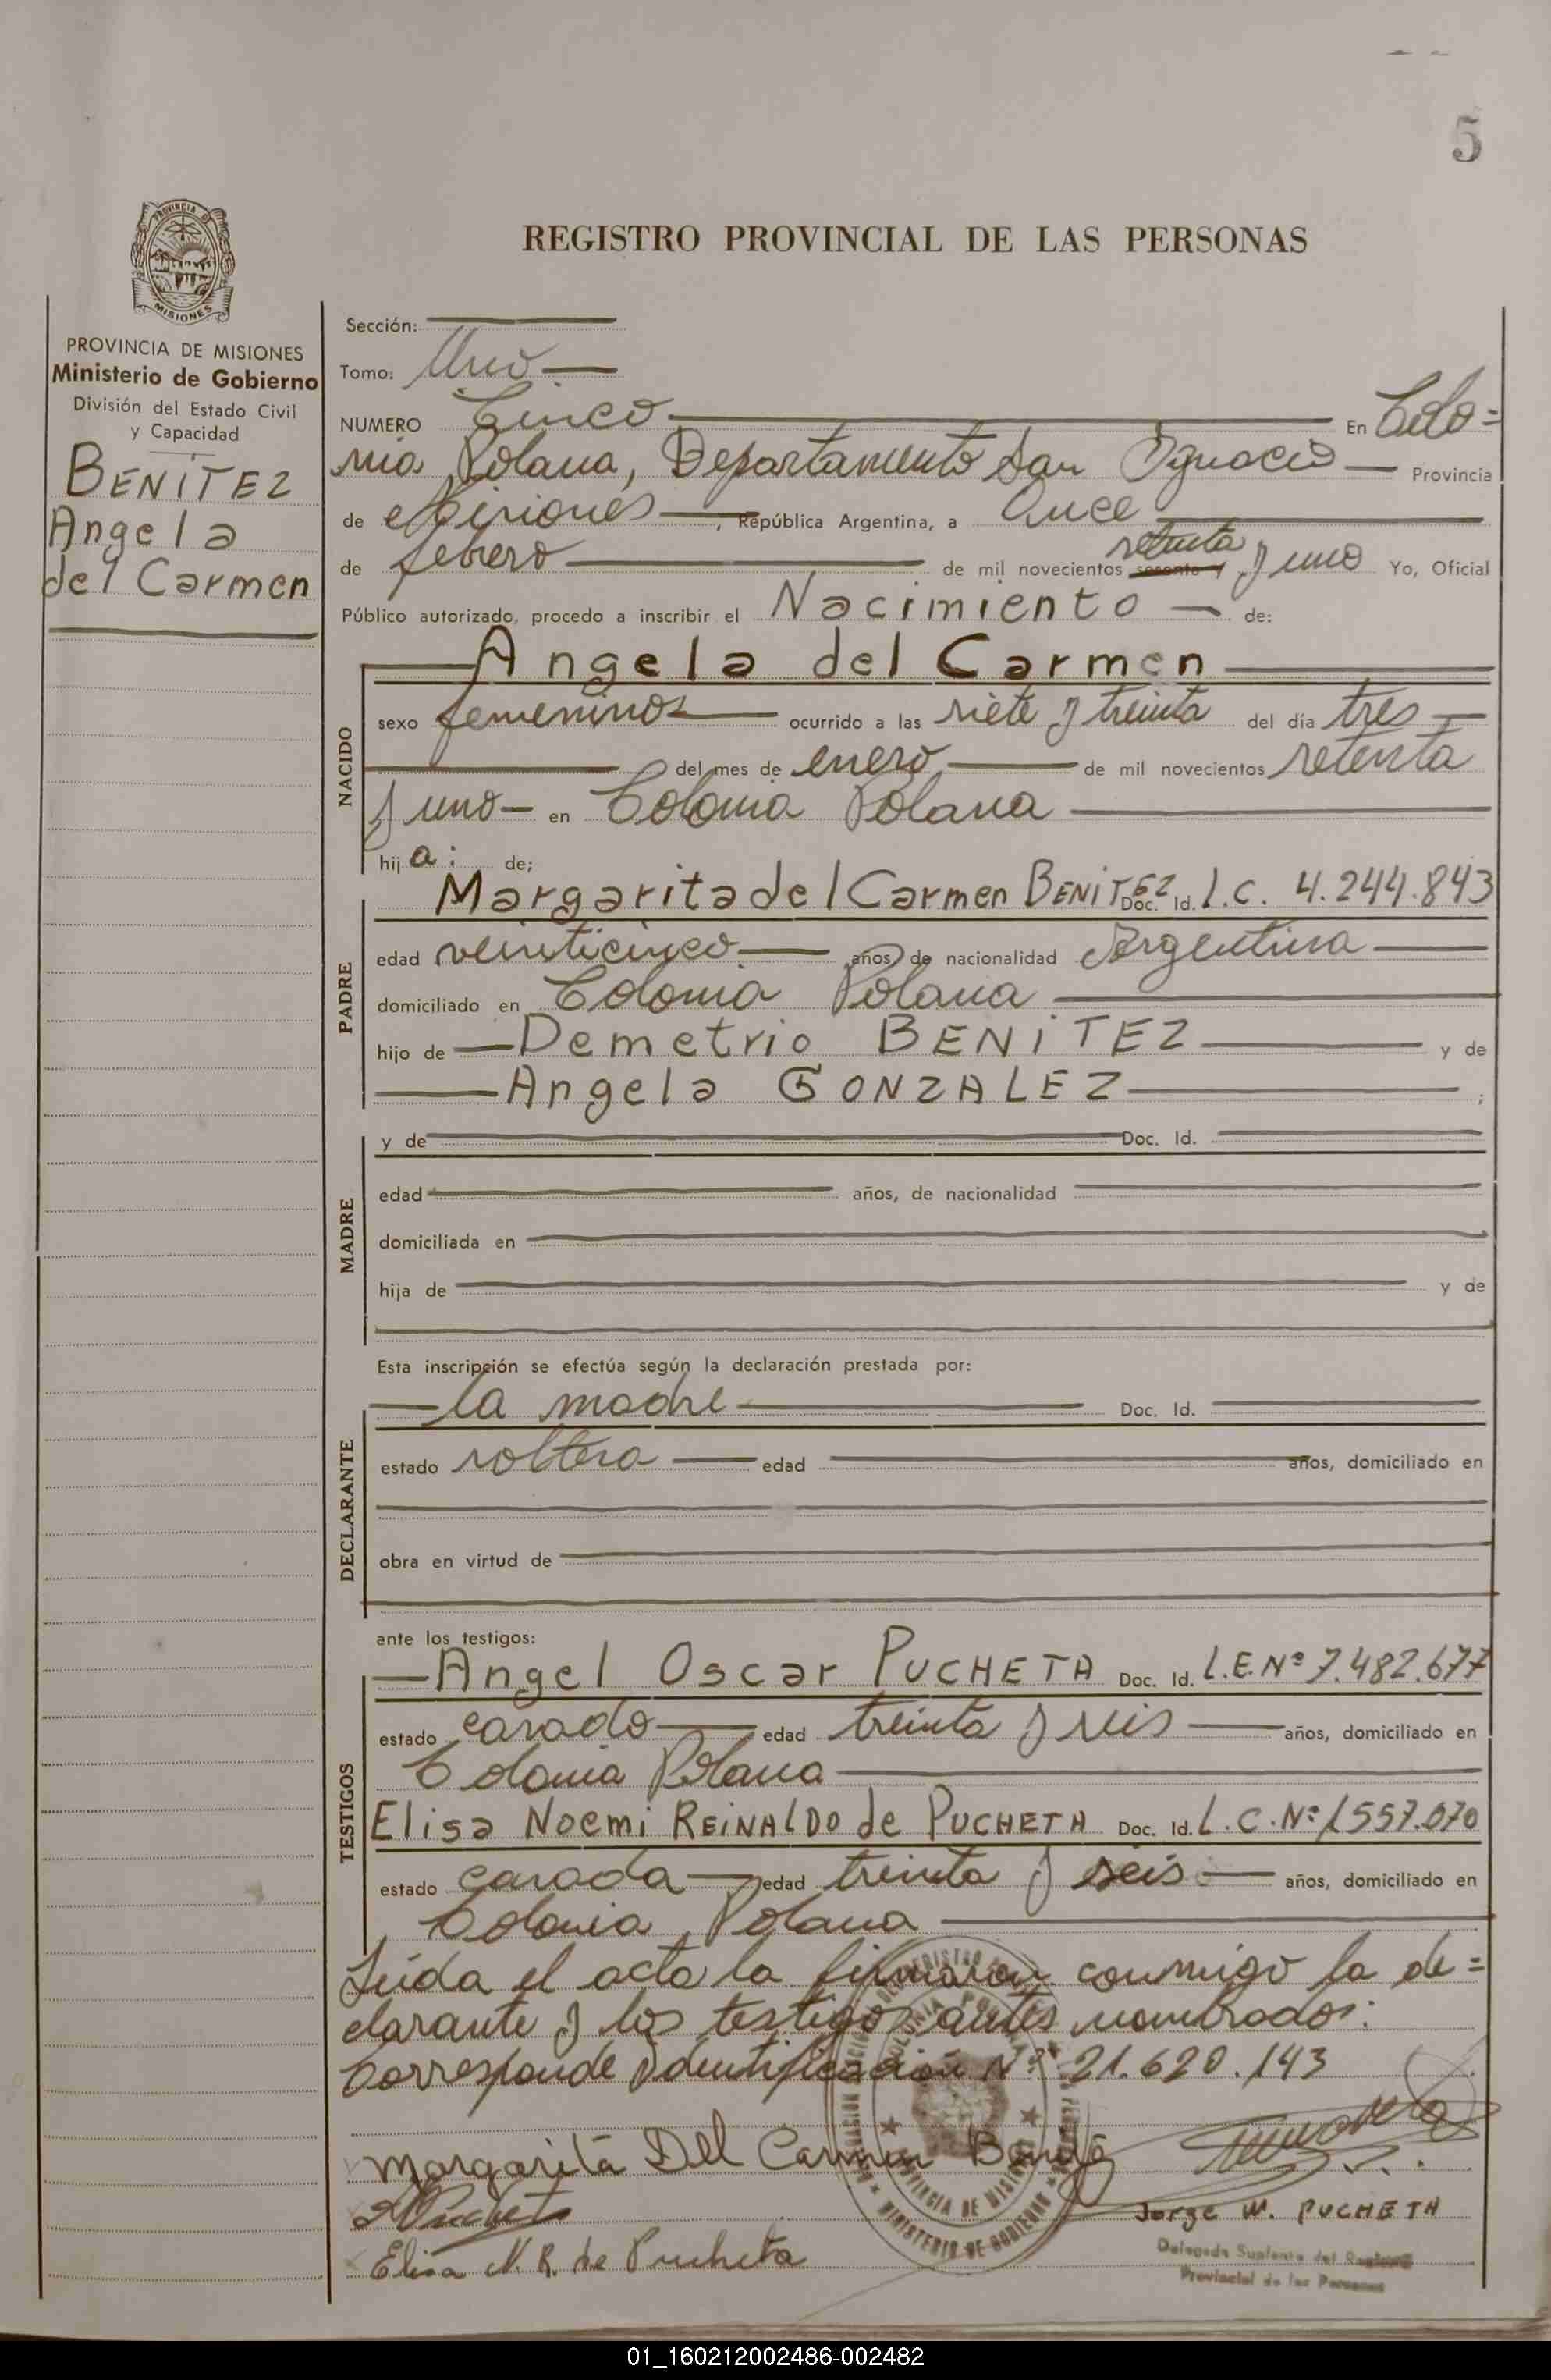 5
PROVINCIA DE
MISIONES
REGISTRO PROVINCIAL DE LAS PERSONAS
PROVINCIA DE MISIONES
Ministerio de Gobierno
División del Estado Civil
y Capacidad
BENíTEZ
Angela
del Carmen
Sección:
Tomo: Uno
NUMERO Cinco En Colo=
nia Polana, Departamento San Ignacio Provincia
de Misiones, República Argentina, a Once
de febrero de mil novecientos sesenta y setenta y uno Yo, Oficial
Público autorizado, procedo a inscribir el Nacimiento de:
NACIDO
Angela del Carmen
sexo femenino ocurrido a las siete y treinta del día tres
del mes de enero de mil novecientos setenta
y uno en Colonia Polana
hija: de;
PADRE
Margarita del Carmen BENITEZ Doc. Id. L.C. 4.244.843
edad veinticinco años, de nacionalidad Argentina
domiciliado en Colonia Polana
hijo de Demetrio BENíTEZ y de
Angela GONZALEZ ;
MADRE
y de Doc. Id.
edad años, de nacionalidad
domiciliada en
hija de y de
Esta inscripción se efectúa según la declaración prestada por:
DECLARANTE
la madre Doc. Id.
estado soltera edad años, domiciliado en
obra en virtud de
ante los testigos:
TESTIGOS
Angel Oscar PUCHETA Doc. Id. L.E.Nº 7.482.677
estado casado edad treinta y seis años, domiciliado en
Colonia Polana
Elisa Noemi REiNALDO de PUCHETA Doc. Id. L.C.Nº 1557.070
estado casada edad treinta y seis años, domiciliado en
Colonia Polana
Leída el acta la firmaron conmigo la de=
clarante y los testigos antes nombrados:
Corresponde Identificación Nº 21.620.143
Margarita Del Carmen
Jorge W. PUCHETA
Elisa N. R. de Pucheta
Delegado Suplente del Registro
Provincial de las Personas
MINISTERIO DE GOBIERNO
PROVINCIA DE MISIONES
01_160212002486-002482